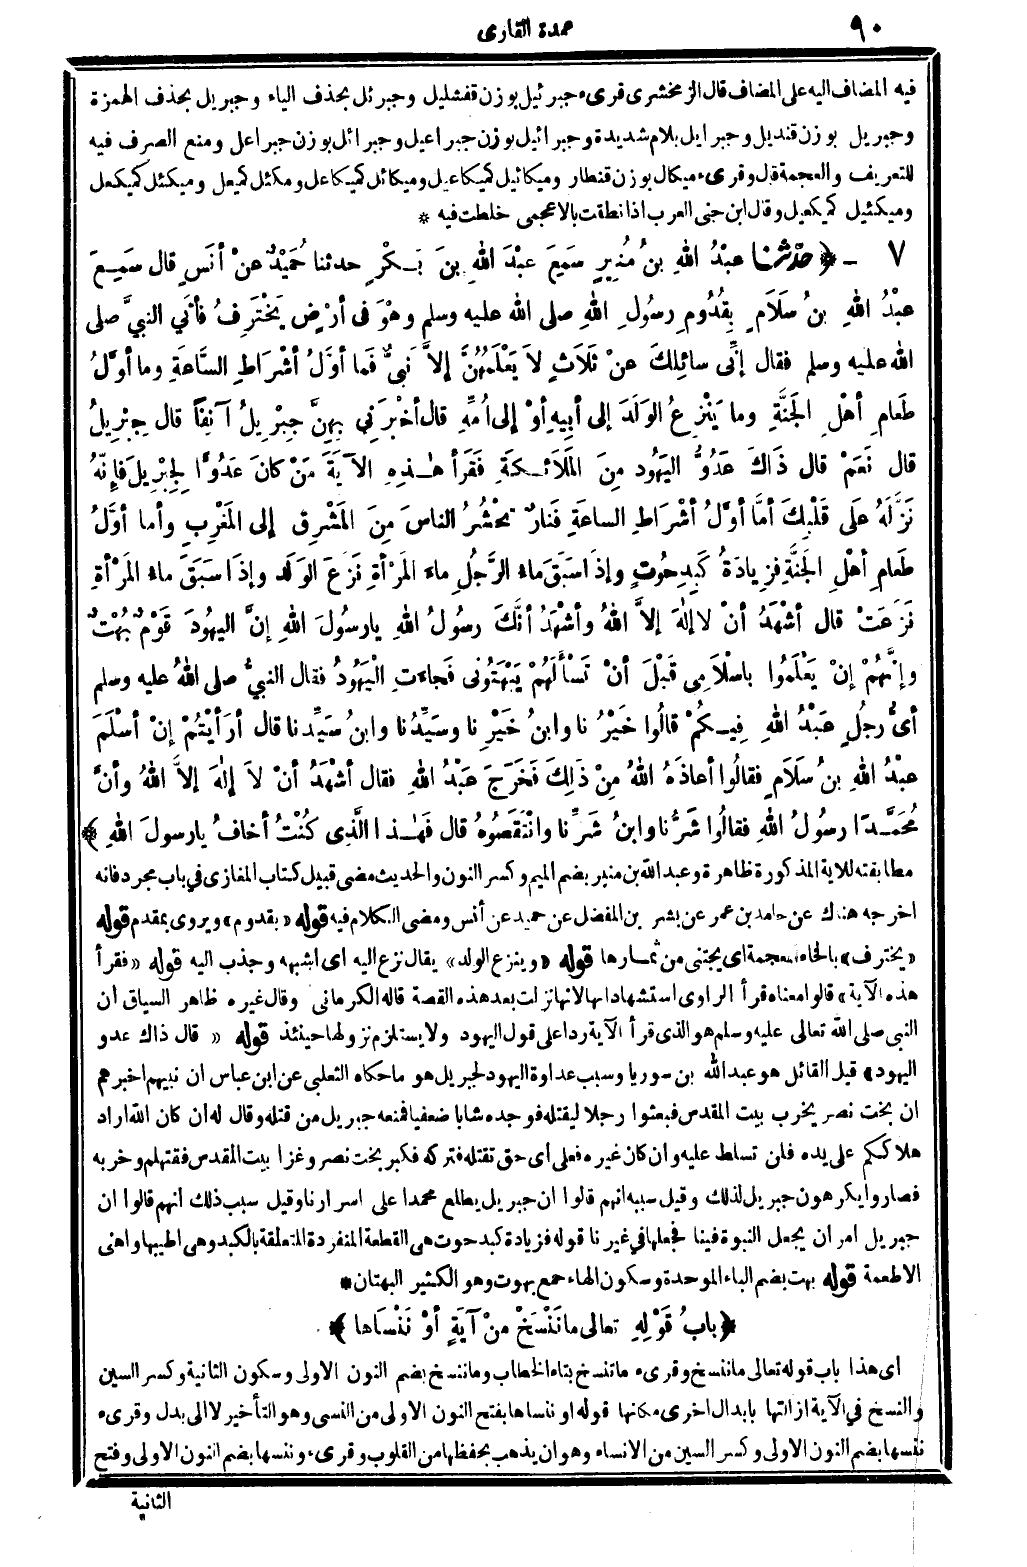 ٩٠
عمدة القارى
فيه المضاف اليه على المضاف قال الزمخشرى قرىء جبرئيل بوزن قفشليل وجبرئل بحذف الياء وجبريل بحذف الهمزة
وجبريل بوزن قنديل وجبرايل بلام شديدة وجبرائيل بوزن جبراعيل وجبرائل بوزن جبراعل ومنع الصرف فيه
للتعريف والعجمة قال وقرىء ميكال بوزن قنطار وميكائيل كميكاعيل وميكائل كميكاعل ومكئل كميعل وميكئل كميكعل
وميكئيل كميكعيل وقال ابن جنى العرب اذا نطقت بالاعجمى خلطت فيه *
٧ - ﴿ حَدَّثَنَا عبْدُ اللهِ بنُ مُنِيرٍ سَمِعَ عبْدَ اللهِ بنَ بَكْرٍ حدثنا حُمَيْدٌ عنْ أنَسٍ قال سَمِعَ
عبْدُ اللهِ بنُ سَلَامٍ بِقُدُومِ رسُولِ اللهِ صلى الله عليه وسلم وهْوَ فى أرْضٍ يَخْتَرِفُ فأتَى النبيَّ صلى
الله عليه وسلم فقال إنِّى سائِلُكَ عنْ ثَلَاثٍ لاَ يَعْلَمُهُنَّ إلاَّ نَبىٌّ فَما أوَّلُ أشْرَاطِ السَّاعَةِ وما أوَّلُ
طَعامِ أهْلِ الجَنَّةِ وما يَنْزِعُ الوَلَدَ إلى أبِيهِ أوْ إلى أُمِّهِ قال أخْبَرَنِي بِهِنَّ جِبْرِيلُ آنِفًا قال جِبْرِيلُ
قال نَعَمْ قال ذَاكَ عَدُوُّ اليَهُودِ مِنَ المَلَائِكَةِ فَقَرَأَ هٰذِهِ الآيَةَ مَنْ كانَ عَدُوًّا لِجِبْرِيلَ فإنَّهُ
نَزَّلَهُ على قَلْبِكَ أمَّا أوَّلُ أشْرَاطِ الساعَةِ فَنارٌ تَحْشُرُ الناسَ مِنَ المَشْرِقِ إلى المَغْرِبِ وأما أوَّلُ
طَعامِ أهْلِ الجَنَّةِ فَزِيادَةُ كَبِدِ حُوتٍ وإذَا سَبَقَ ماءُ الرَّجُلِ ماءَ المَرْأةِ نَزَعَ الوَلَدَ وإذَا سَبَقَ ماءُ المَرْأةِ
نَزَعَتْ قال أشْهَدُ أنْ لا إلٰهَ إلاَّ اللهُ وأشْهَدُ أنَّكَ رسُولُ اللهِ يا رسُولَ اللهِ إنَّ اليَهُودَ قَوْمٌ بُهْتٌ
وإنَّهُمْ إنْ يَعْلَمُوا باسْلَامِى قَبْلَ أنْ تَسْألَهُمْ يَبْهَتُونى فَجاءَتِ الْيَهُودُ فقال النبيُّ صلى اللهُ عليه وسلم
أىُّ رجُلٍ عَبْدُ اللهِ فِيكُمْ قالُوا خَيْرُنا وابنُ خَيْرِنا وسَيِّدُنا وابنُ سَيِّدِنا قال أرَأيْتُمْ إنْ أسْلَمَ
عبْدُ اللهِ بنُ سَلَامٍ فقالُوا أعاذَهُ اللهُ مِنْ ذَلِكَ فَخَرَجَ عَبْدُ اللهِ فقال أشْهَدُ أنْ لاَ إلٰهَ إلاَّ اللهُ وأنَّ
مُحَمَّدًا رسُولُ اللهِ فقالُوا شَرُّنا وابنُ شَرِّنا وانْتَقَصُوهُ قال فَهٰذا الَّذِى كُنْتُ أخافُ يا رسولَ اللهِ ﴾
مطابقته للاية المذكورة ظاهرة وعبد الله بن منير بضم الميم وكسر النون والحديث مضى قبيل كتاب المغازى في باب مجرد فانه
اخرجه هناك عن حامد بن عمر عن بشر بن المفضل عن حميد عن أنس ومضى الكلام فيه قوله «بقدوم» ويروى بمقدم قوله
«يخترف» بالخاء المعجمة اى يجتنى من ثمارها قوله «وينزع الولد» يقال نزع اليه اى اشبهه وجذب اليه قوله «فقرأ
هذه الآية» قالوا معناه قرأ الراوى استشهادا بها لانها نزلت بعد هذه القصة قاله الكرمانى وقال غيره ظاهر السياق ان
النبى صلى الله تعالى عليه وسلم هو الذى قرأ الآية ردا على قول اليهود ولا يستلزم نزولها حينئذ قوله «قال ذاك عدو
اليهود» قيل القائل هو عبد الله بن صوريا وسبب عداوة اليهود لجبريل هو ما حكاه الثعلبى عن ابن عباس ان نبيهم اخبرهم
ان بخت نصر يخرب بيت المقدس فبعثوا رجلا ليقتله فوجده شابا ضعيفا فمنعه جبريل من قتله وقال له ان كان الله اراد
هلاككم على يده فلن تسلط عليه وان كان غيره فعلى أى حق تقتله فتركه فكبر بخت نصر وغزا بيت المقدس فقتهلم وخربه
فصاروا يكرهون جبريل لذلك وقيل سببه انهم قالوا ان جبريل يطلع محمدا على اسرارنا وقيل سبب ذلك انهم قالوا ان
جبريل امر ان يجعل النبوة فينا فجعلها في غيرنا قوله فزيادة كبد حوت هى القطعة المنفردة المتعلقة بالكبد وهى اطيبها واهنى
الاطعمة قوله بهت بضم الباء الموحدة وسكون الهاء جمع بهوت وهو الكثير البهتان *
﴿ بابُ قَوْلِهِ تعالى ما نَنْسَخْ مِنْ آيَةٍ أوْ نَنْسَاها ﴾
اى هذا باب قوله تعالى ما ننسخ وقرىء ما تنسخ بتاء الخطاب وما ننسخ بضم النون الاولى وسكون الثانية وكسر السين
والنسخ في الآية ازالتها بابدال اخرى مكانها قوله او ننساها بفتح النون الاولى من النسى وهو التأخير لا الى بدل وقرىء
ننسها بضم النون الاولى وكسر السين من الانساء وهو ان يذهب بحفظها من القلوب وقرىء وننسها بضم النون الاولى وفتح
الثانية